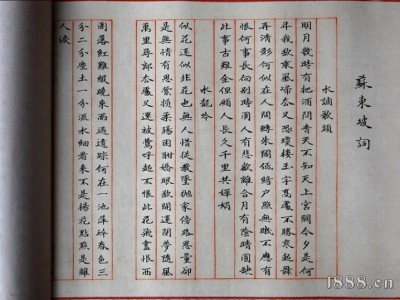 蘇東坡詞
水調歌頭
明月幾時有把酒問青天不知天上宮闕今夕是何
年我欲乘風歸去又恐瓊樓玉宇高處不勝寒起舞
弄清影何似在人間轉朱閣低綺戶照無眠不應有
恨何事長向別時圓人有悲歡離合月有陰晴圓缺
此事古難全但願人長久千里共嬋娟
水龍吟
似花還似非花也無人惜從教墜拋家傍路思量却
是無情有思縈損柔腸困酣嬌眼欲開還閉夢隨風
萬里尋郎去處又還被鶯呼起不恨此花飛盡恨西
園落紅難綴曉來雨過遺蹤何在一池萍碎春色三
分二分塵土一分流水細看來不是楊花點點是離
人淚
1888.cn